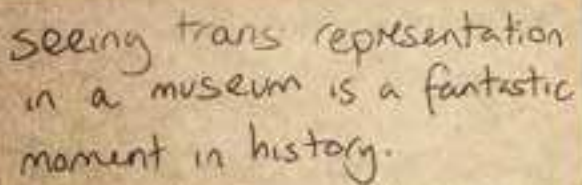 seeing trans representation
in a museum is a fantastic
moment in history.